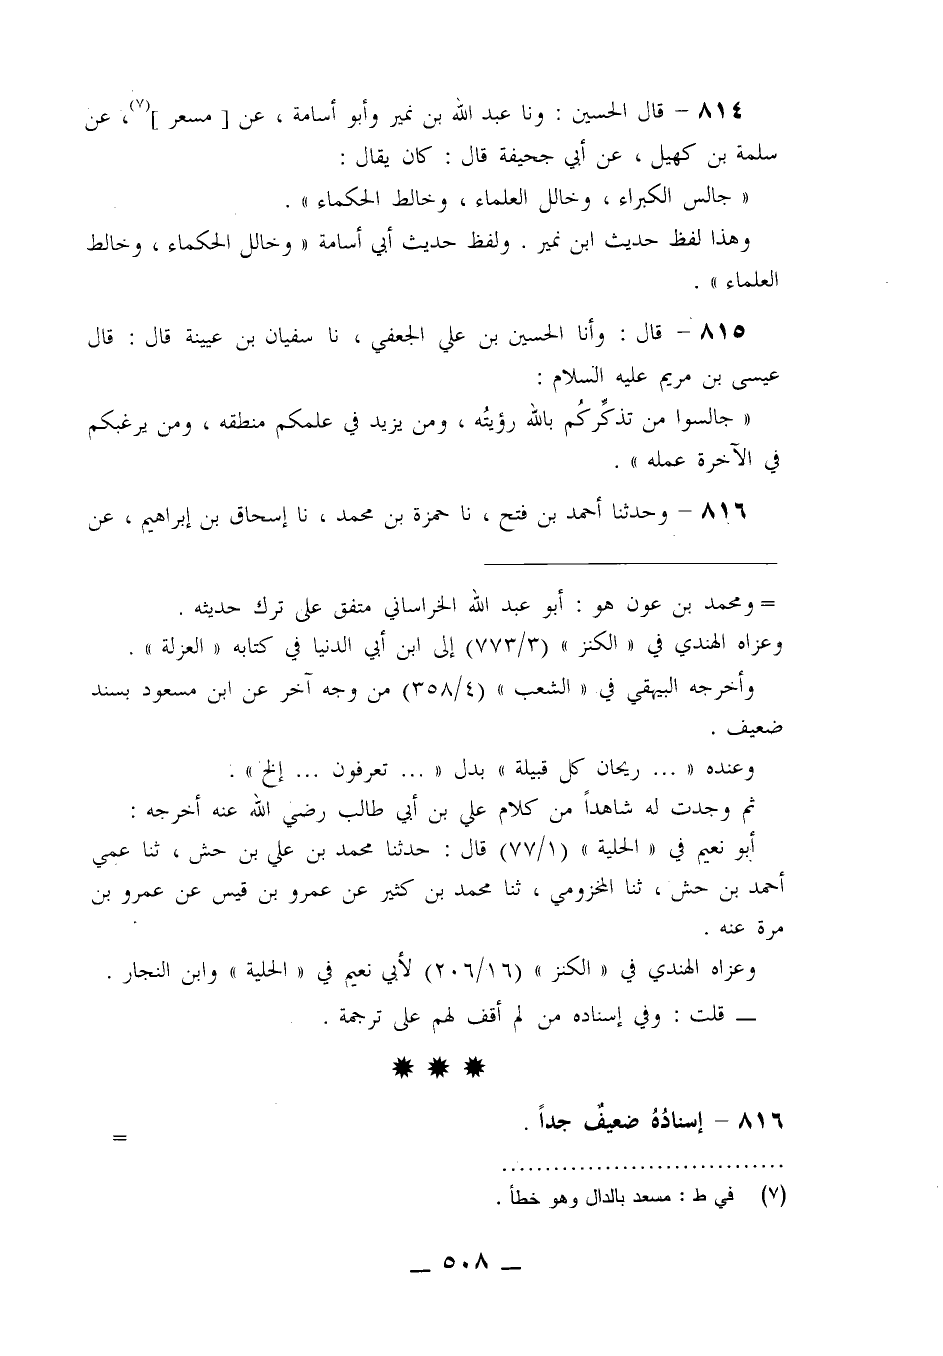 ٨١٤ – قال الحسين : ونا عبد الله بن نمير وأبو أسامة ، عن [ مسعر ](٧)، عن
سلمة بن كهيل ، عن أبي جحيفة قال : كان يقال :
« جالس الكبراء ، وخالل العلماء ، وخالط الحكماء » .
وهذا لفظ حديث ابن نمير . ولفظ حديث أبي أسامة « وخالل الحكماء ، وخالط
العلماء » .
٨١٥ – قال : وأنا الحسين بن علي الجعفي ، نا سفيان بن عيينة قال : قال
عيسى بن مريم عليه السلام :
« جالسوا من تذكِّركُم بالله رؤيتُه ، ومن يزيد في علمكم منطقه ، ومن يرغبكم
في الآخرة عمله » .
٨١٦ – وحدثنا أحمد بن فتح ، نا حمزة بن محمد ، نا إسحاق بن إبراهيم ، عن
= ومحمد بن عون هو : أبو عبد الله الخراساني متفق على ترك حديثه .
وعزاه الهندي في « الكنز » (٧٧٣/٣) إلى ابن أبي الدنيا في كتابه « العزلة » .
وأخرجه البيهقي في « الشعب » (٣٥٨/٤) من وجه آخر عن ابن مسعود بسند
ضعيف .
وعنده « ... ريحان كل قبيلة » بدل « ... تعرفون ... إلخ » .
ثم وجدت له شاهداً من كلام علي بن أبي طالب رضي الله عنه أخرجه :
أبو نعيم في « الحلية » (٧٧/١) قال : حدثنا محمد بن علي بن حش ، ثنا عمي
أحمد بن حش ، ثنا المخزومي ، ثنا محمد بن كثير عن عمرو بن قيس عن عمرو بن
مرة عنه .
وعزاه الهندي في « الكنز » (٢٠٦/١٦) لأبي نعيم في « الحلية » وابن النجار .
— قلت : وفي إسناده من لم أقف لهم على ترجمة .
✹ ✹ ✹
٨١٦ – إسنادُهُ ضعيفٌ جداً .
=
................................
(٧) في ط : مسعد بالدال وهو خطأ .
— ٥٠٨ —